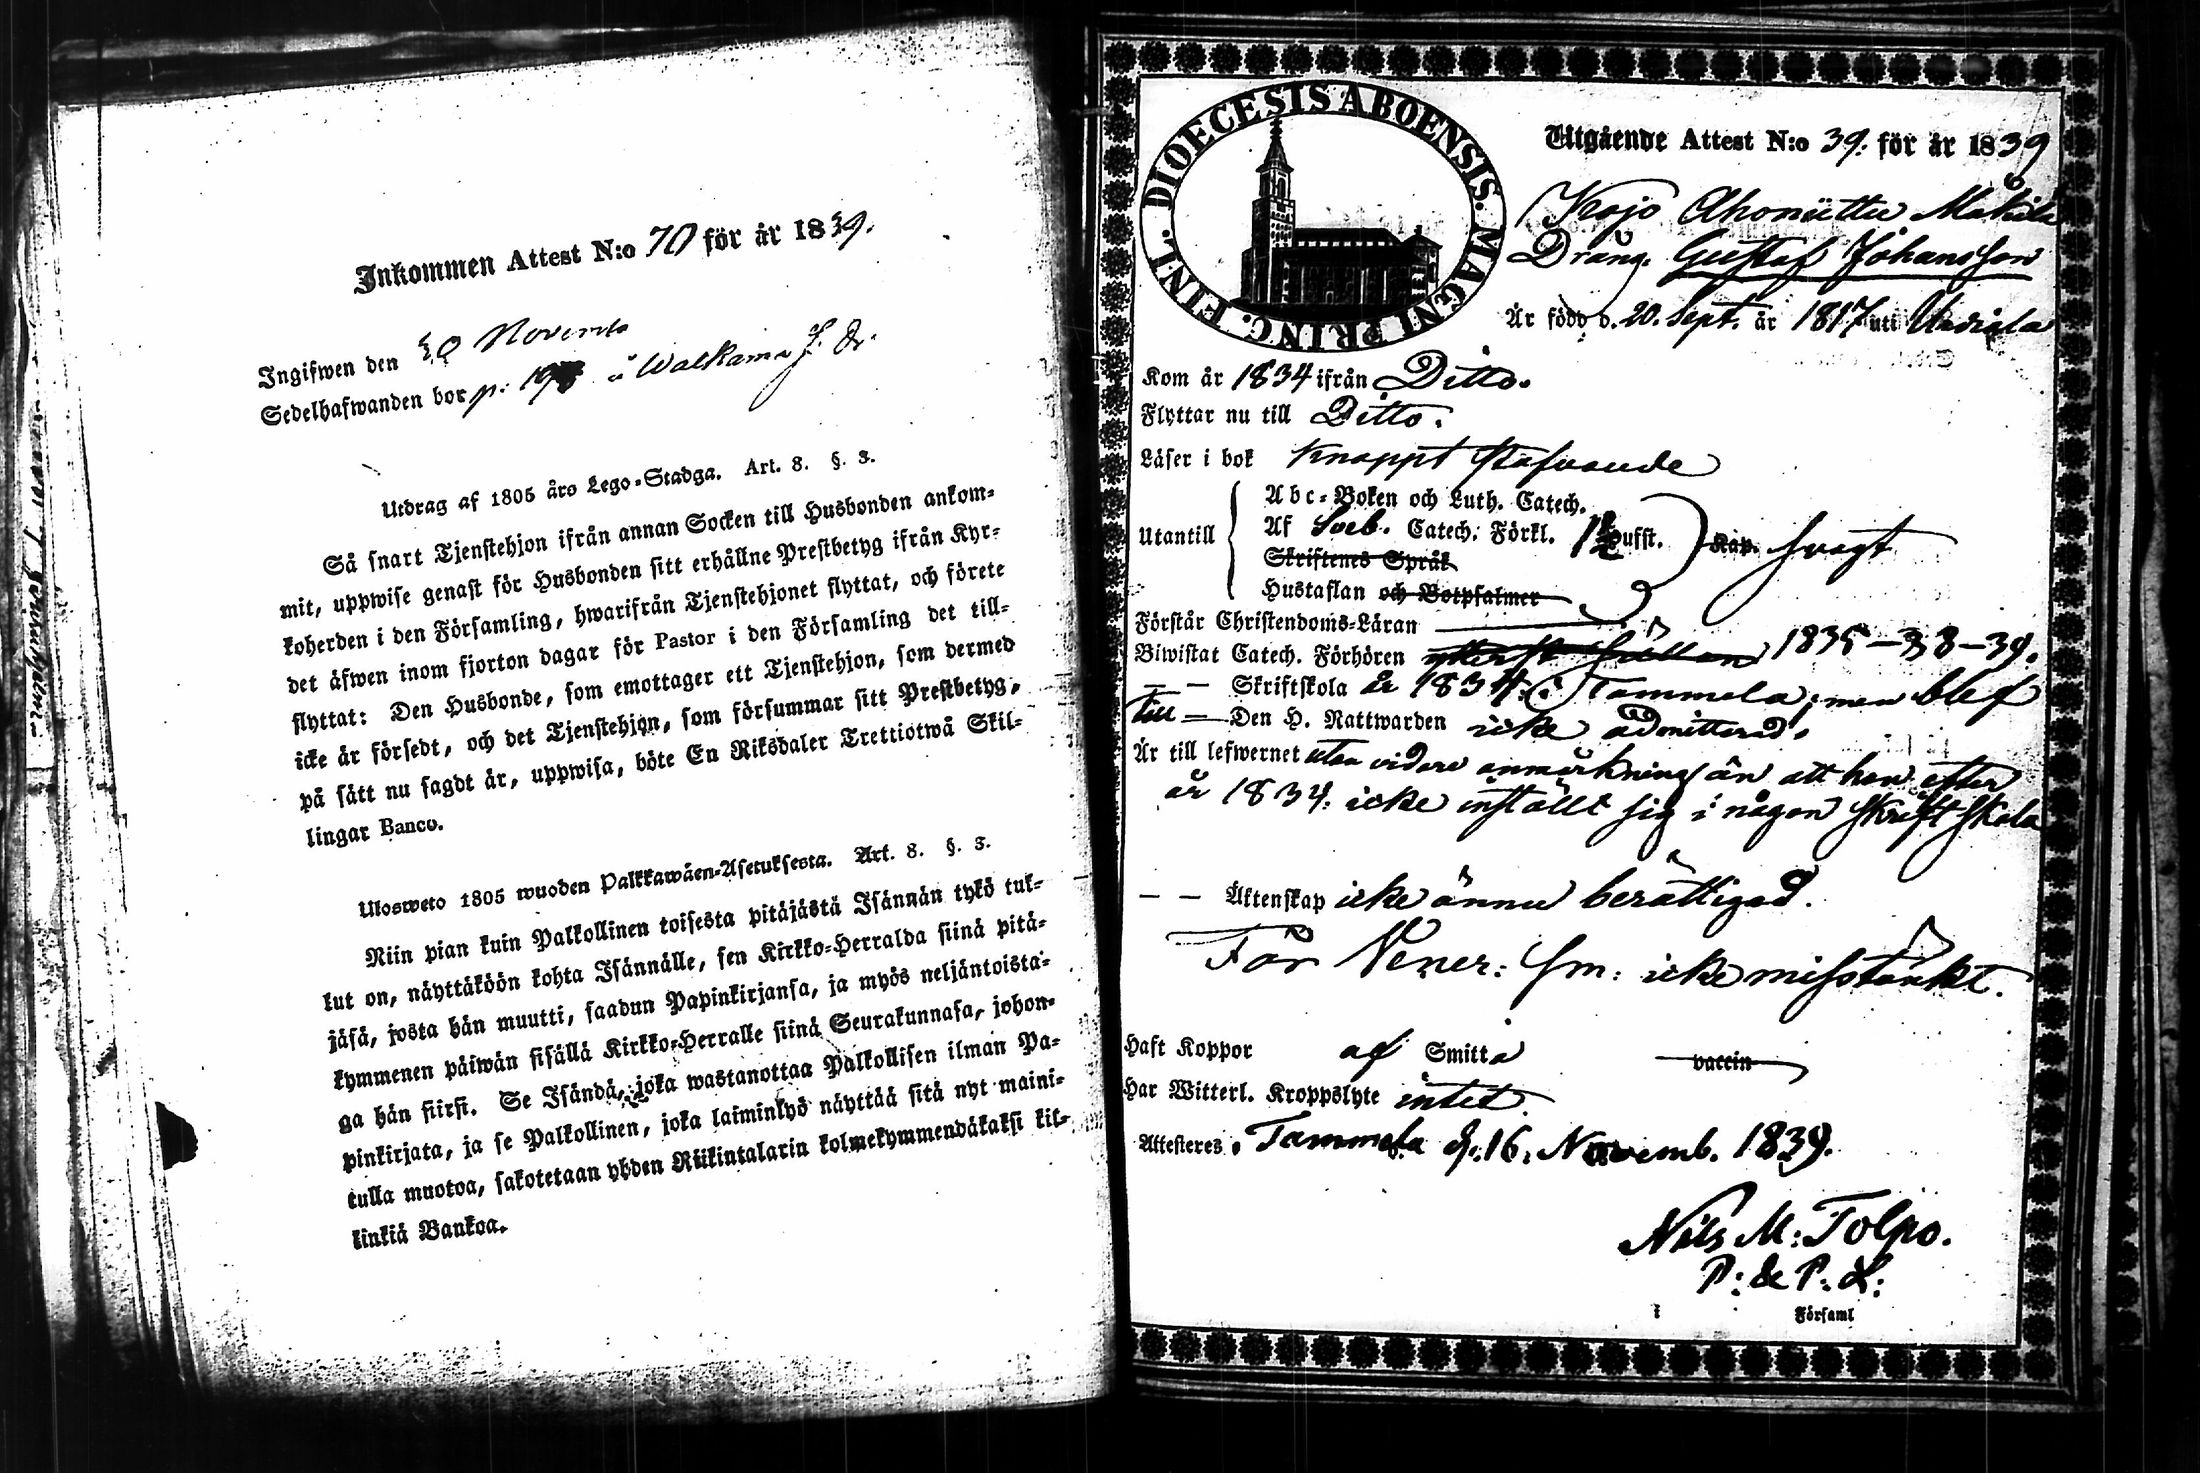 Inkommen Attest N:o 70 för år 1839.
Ingifwen den 20 Novemb
Sedelhafwanden bor p: 19 å Walkama
Utdrag af 1805 års Lego-Stadga. Art. 8. §. 3.
Så snart Tjenstehjon ifrån annan Socken till Husbonden ankom-
mit, uppwise genast för Husbonden sitt erhållne Prestbetyg ifrån Kyr-
koherden i den Församling, hwarifrån Tjenstehjonet flyttat, och förete
det äfwen inom fjorton dagar för Pastor i den Församling det till-
flyttat: Den Husbonde, som emottager ett Tjenstehjon, som dermed
icke är försedt, och det Tjenstehjon, som försummar sitt Prestbetyg,
på sätt nu sagdt är, uppwisa, böte En Riksdaler Trettiotwå Skil-
lingar Banco.
Ulosweto 1805 wuoden Palkkawäen-Asetuksesta. Art. 8. §. 3.
Niin pian kuin Palkollinen toisesta pitäjästä Isännän tykö tul-
lut on, näyttäköön kohta Isännälle, sen Kirkko-Herralda siinä pitä-
jäsä, josta hän muutti, saadun Papinkirjansa, ja myös neljäntoista-
kymmenen päiwän sisällä Kirkko-Herralle siinä Seurakunnasa, johon-
ga hän siirsi. Se Isändä, joka wastanottaa Palkollisen ilman Pa-
pinkirjata, ja se Palkollinen, joka laiminlyö näyttää sitä nyt maini-
tulla muotoa, sakotetaan yhden Riikintalarin kolmekymmendäkaksi kil-
linkiä Bankoa.
DIOECESIS ABOENSIS. MAGNI PRINC. FINL.
Utgående Attest N:o 39. för år 1839
Kojo Ahoniittu Mäkilä
Dräng. Gustaf Johansson
Är född d. 20. Sept. år 1817 uti Urdiala
Kom år 1834 ifrån Ditto.
Flyttar nu till Ditto.
Läser i bok knappt stafvande
Utantill
Abc-Boken och Luth. Catech.
Af Sveb. Catech. Förkl. 1½ Hufst. Kap. svagt
Skriftenes Språk
Hustaflan och Botpsalmer
Förstår Christendoms-Läran
Biwistat Catech. Förhören ytterst sällan 1835-38-39.
— — Skriftskola år 1834. i Tammela; men blef
till — Den H. Nattwarden icke admitterad.
Är till lefwernet utan vidare anmärkning än att han efter
år 1834. icke inställt sig i någon Skriftskola
— — Äktenskap icke ännu berättigad.
För Vener: Sm: icke misstänkt.
Haft Koppor af Smitta vaccin
Har Witterl. Kroppslyte intet.
Attesteres, Tammela d. 16. Novemb. 1839.
Nils M: Tolpo.
P: & P: L:
i Församl